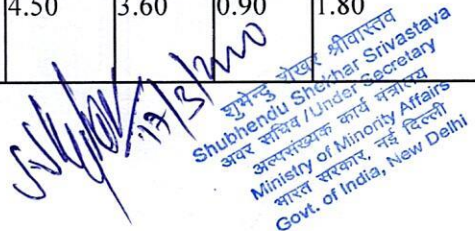 4.50 3.60 0.90 1.80
17/3/2020
शुभेन्दु शेखर श्रीवास्तव
Shubhendu Shekhar Srivastava
अवर सचिव / Under Secretary
अल्पसंख्यक कार्य मंत्रालय
Ministry of Minority Affairs
भारत सरकार, नई दिल्ली
Govt. of India, New Delhi